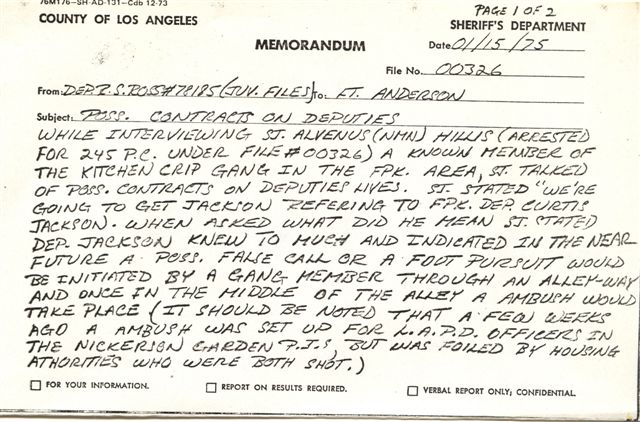 76M176-SH-AD-131-Cdb 12-73
PAGE 1 OF 2
COUNTY OF LOS ANGELES
SHERIFF'S DEPARTMENT
MEMORANDUM
Date 01/15/75
File No. 00326
From: DEP. R.S. ROSS #78185 (JUV. FILES) To: FT. ANDERSON
Subject: POSS. CONTRACTS ON DEPUTIES
WHILE INTERVIEWING SJ. ALVENUS (NMN) HILLIS (ARRESTED
FOR 245 P.C. UNDER FILE # 00326) A KNOWN MEMBER OF
THE KITCHEN CRIP GANG IN THE FPK. AREA, SJ. TALKED
OF POSS. CONTRACTS ON DEPUTIES LIVES. SJ. STATED "WE'RE
GOING TO GET JACKSON REFERING TO FPK. DEP. CURTIS
JACKSON. WHEN ASKED WHAT DID HE MEAN SJ. STATED
DEP. JACKSON KNEW TO MUCH AND INDICATED IN THE NEAR
FUTURE A POSS. FALSE CALL OR A FOOT PURSUIT WOULD
BE INITIATED BY A GANG MEMBER THROUGH AN ALLEY-WAY
AND ONCE IN THE MIDDLE OF THE ALLEY A AMBUSH WOULD
TAKE PLACE (IT SHOULD BE NOTED THAT A FEW WEEKS
AGO A AMBUSH WAS SET UP FOR L.A.P.D. OFFICERS IN
THE NICKERSON GARDEN P.J.S, BUT WAS FOILED BY HOUSING
ATHORITIES WHO WERE BOTH SHOT.)
FOR YOUR INFORMATION. REPORT ON RESULTS REQUIRED. VERBAL REPORT ONLY; CONFIDENTIAL.